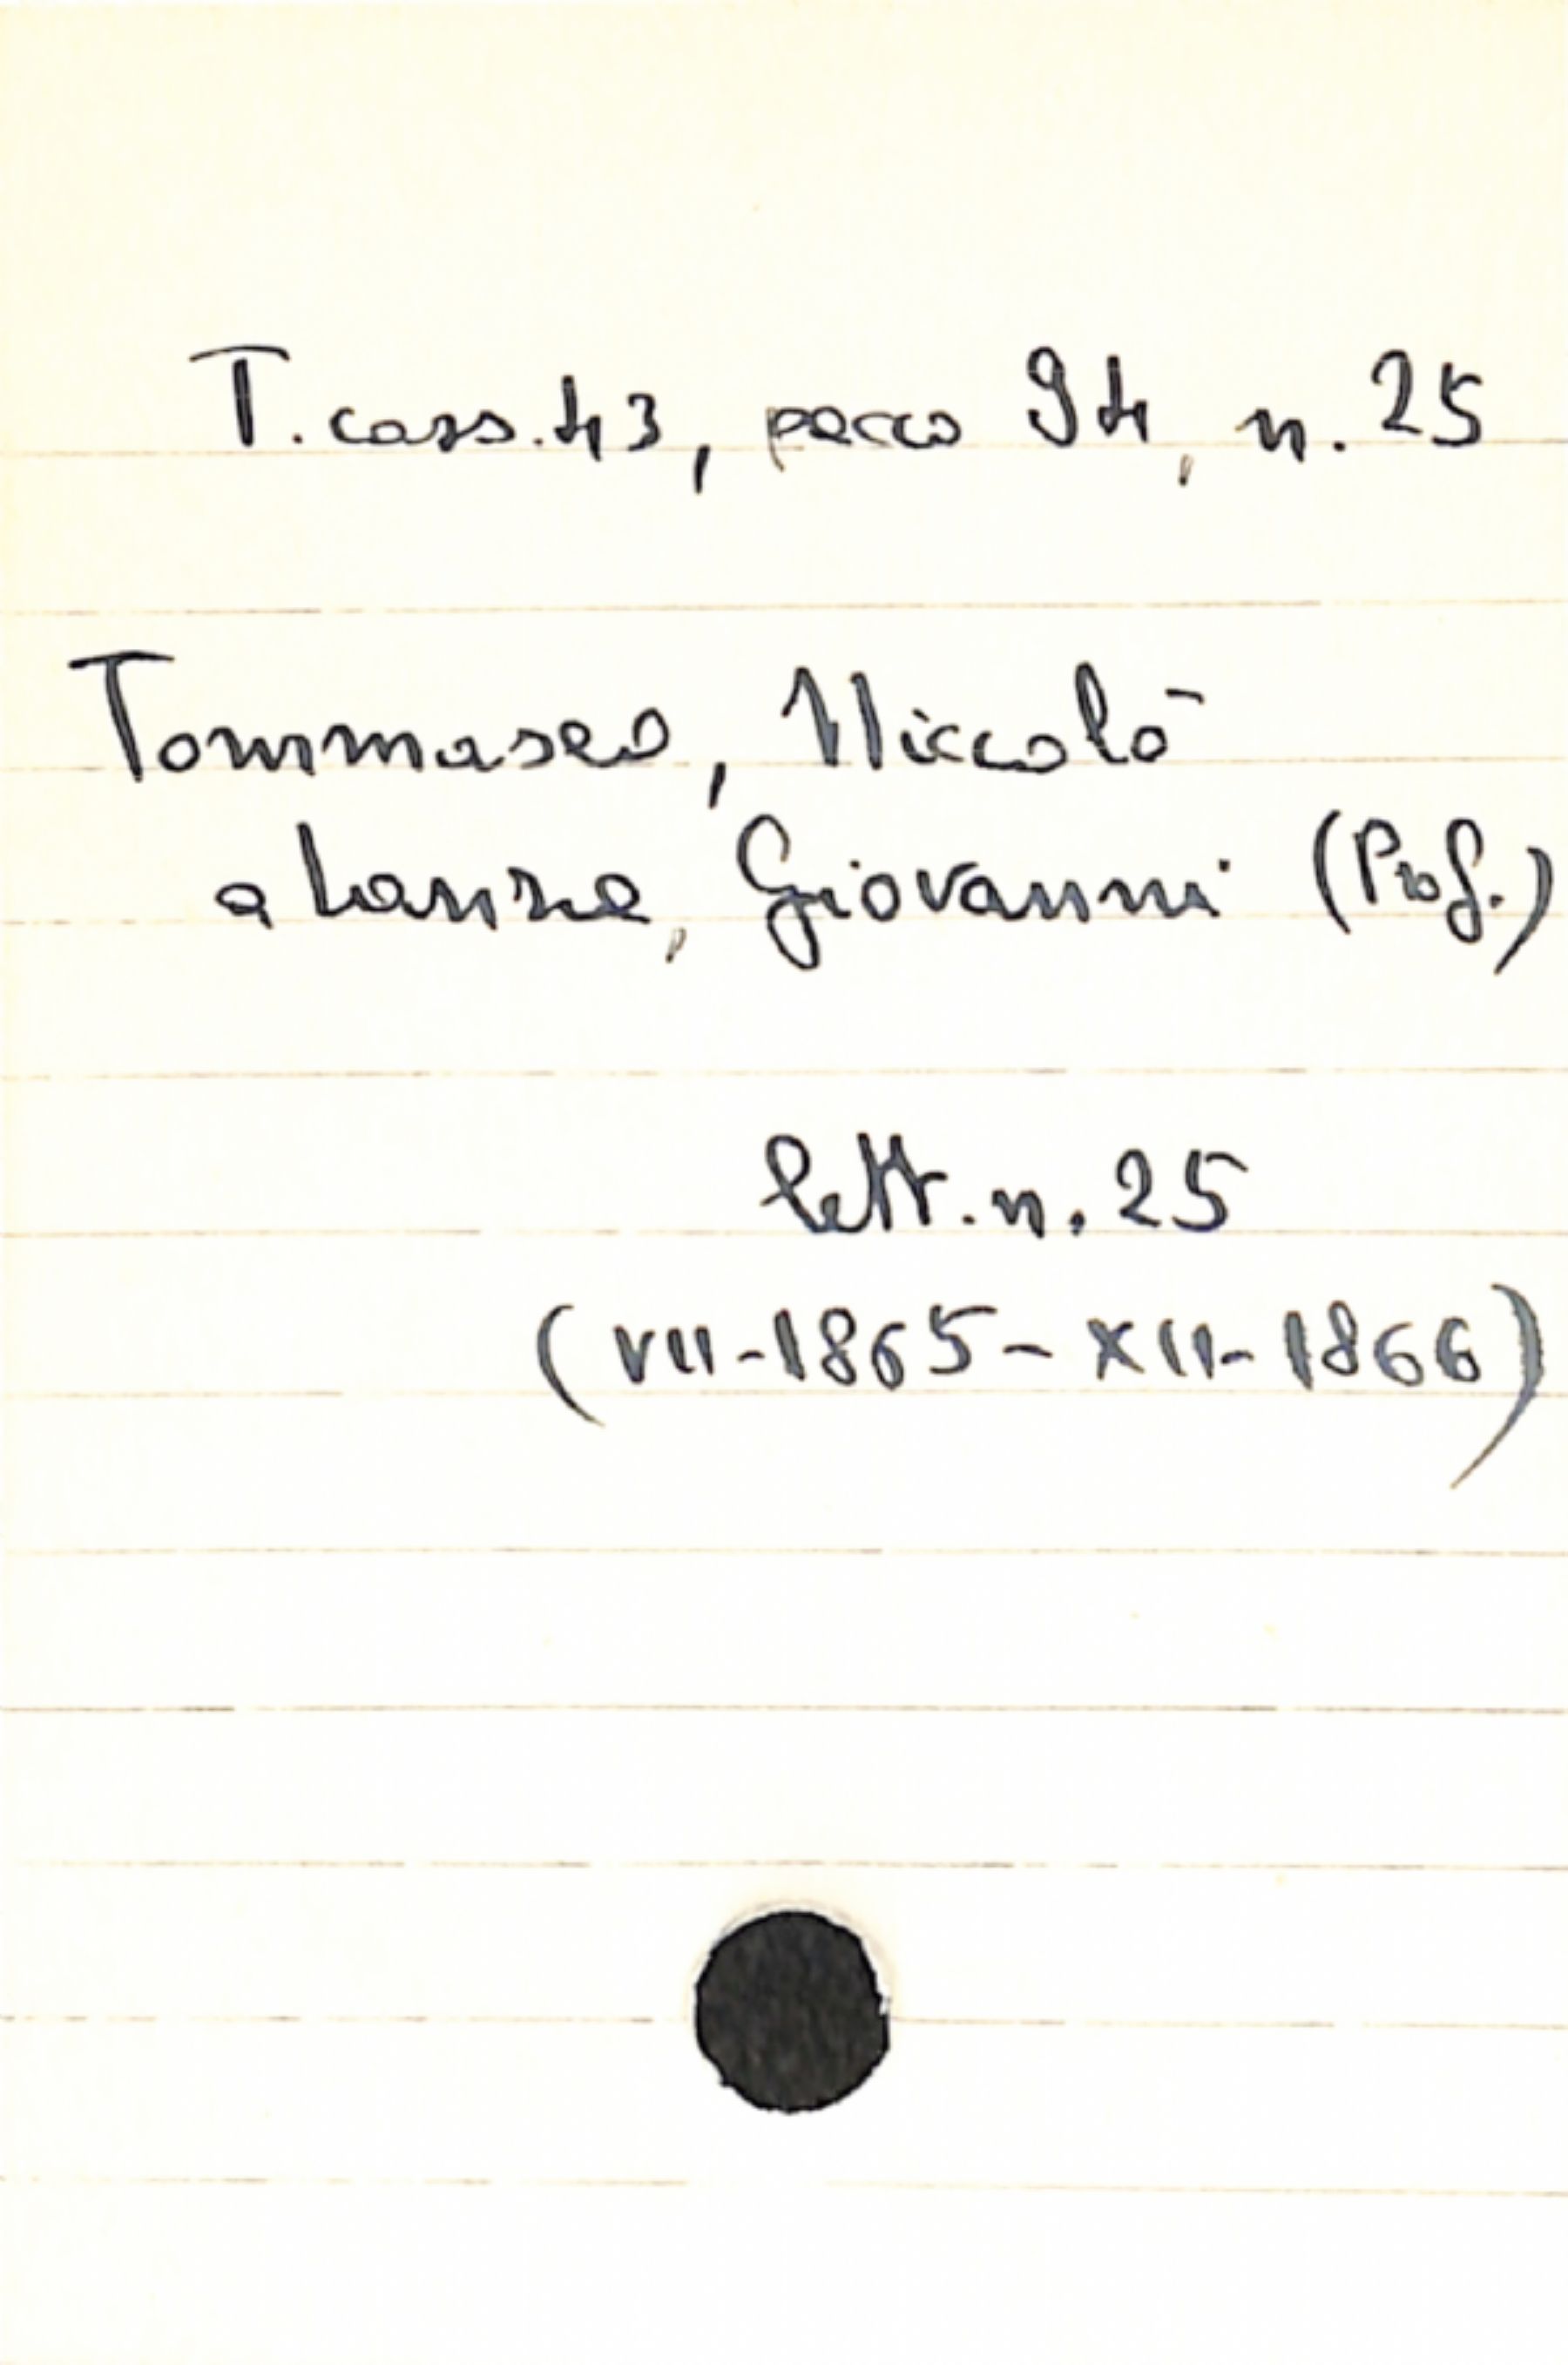 T. cass. 43, pacco 94, n. 25
Tommaseo, Niccolò
a Lanza, Giovanni (Prof.)
lett. n. 25
(VII-1865 - XII-1866)